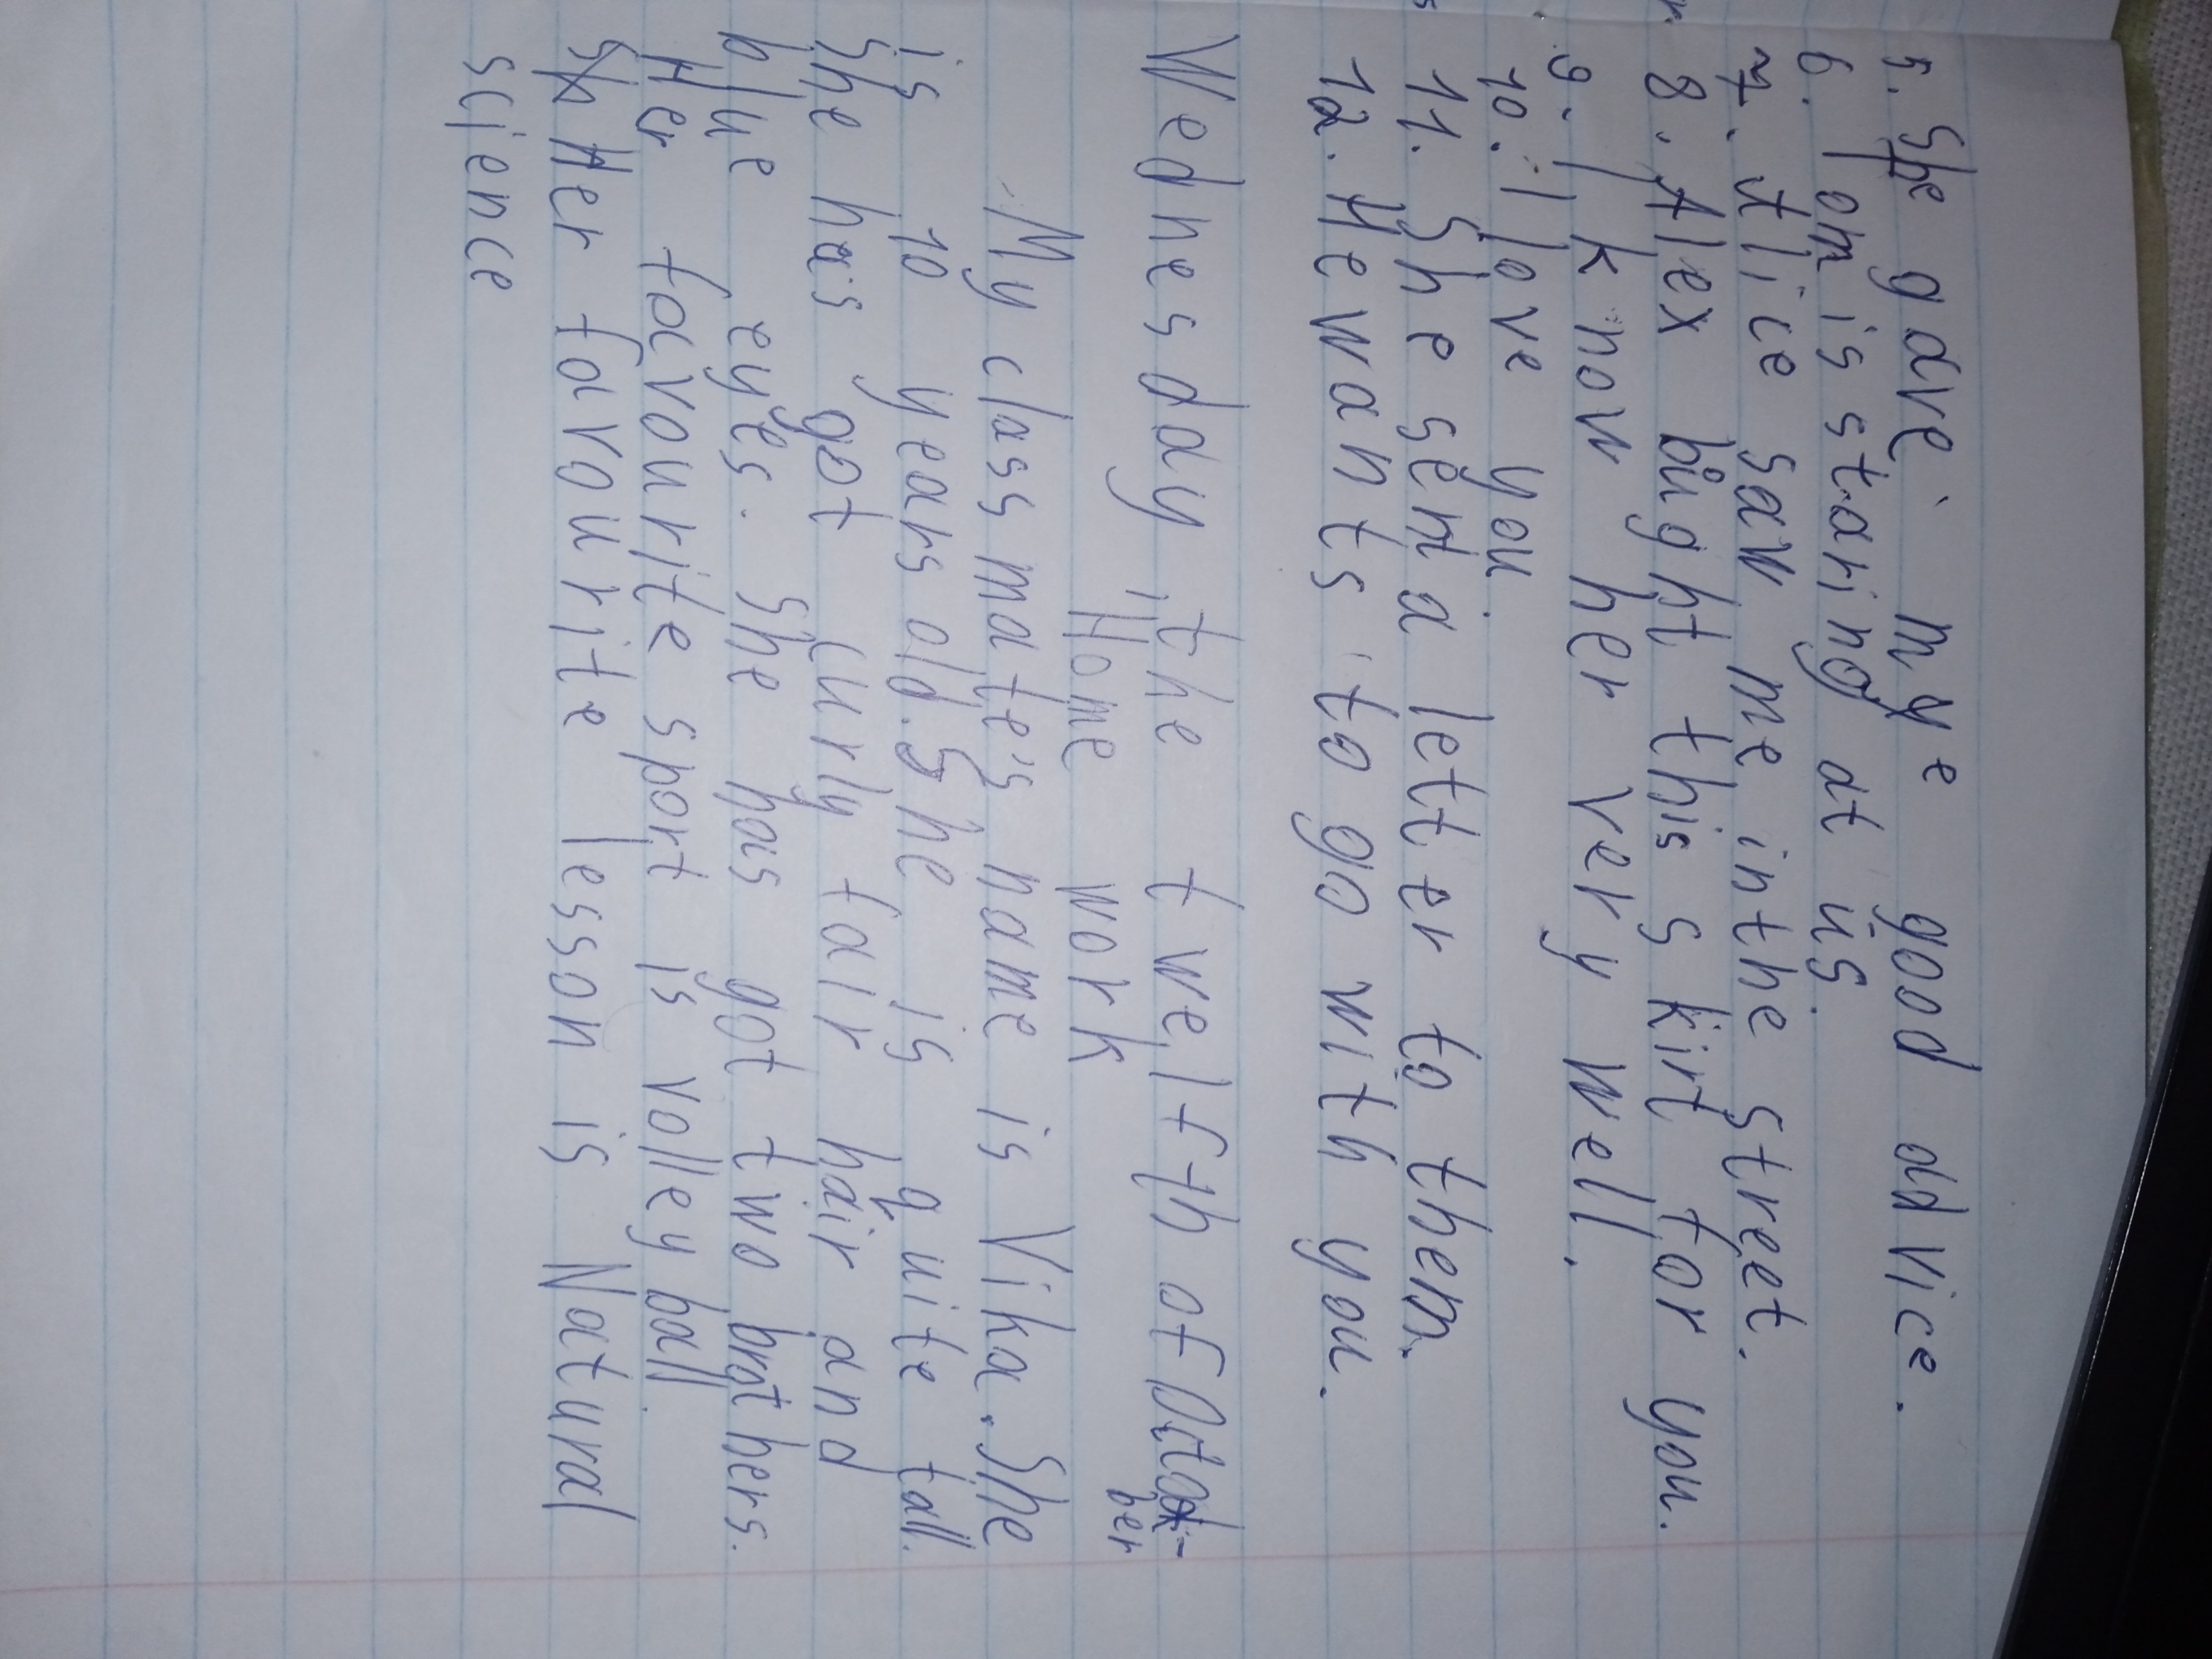 5. She gave mye good advice.
6. Tom is staring at us.
7. Alice saw me in the street.
8. Alex bught this skirt for you.
9. I know her very well.
10. I love you.
11. She sent a letter to them.
12. He wants to go with you.
Wednesday, the twelfth of Octo-
ber
Home work
My classmate's name is Vika. She
is 10 years old. She is quite tall.
She has got curly fair hair and
blue eyes. She has got two brothers.
Her favourite sport is volleyball.
Her favourite lesson is Natural
science